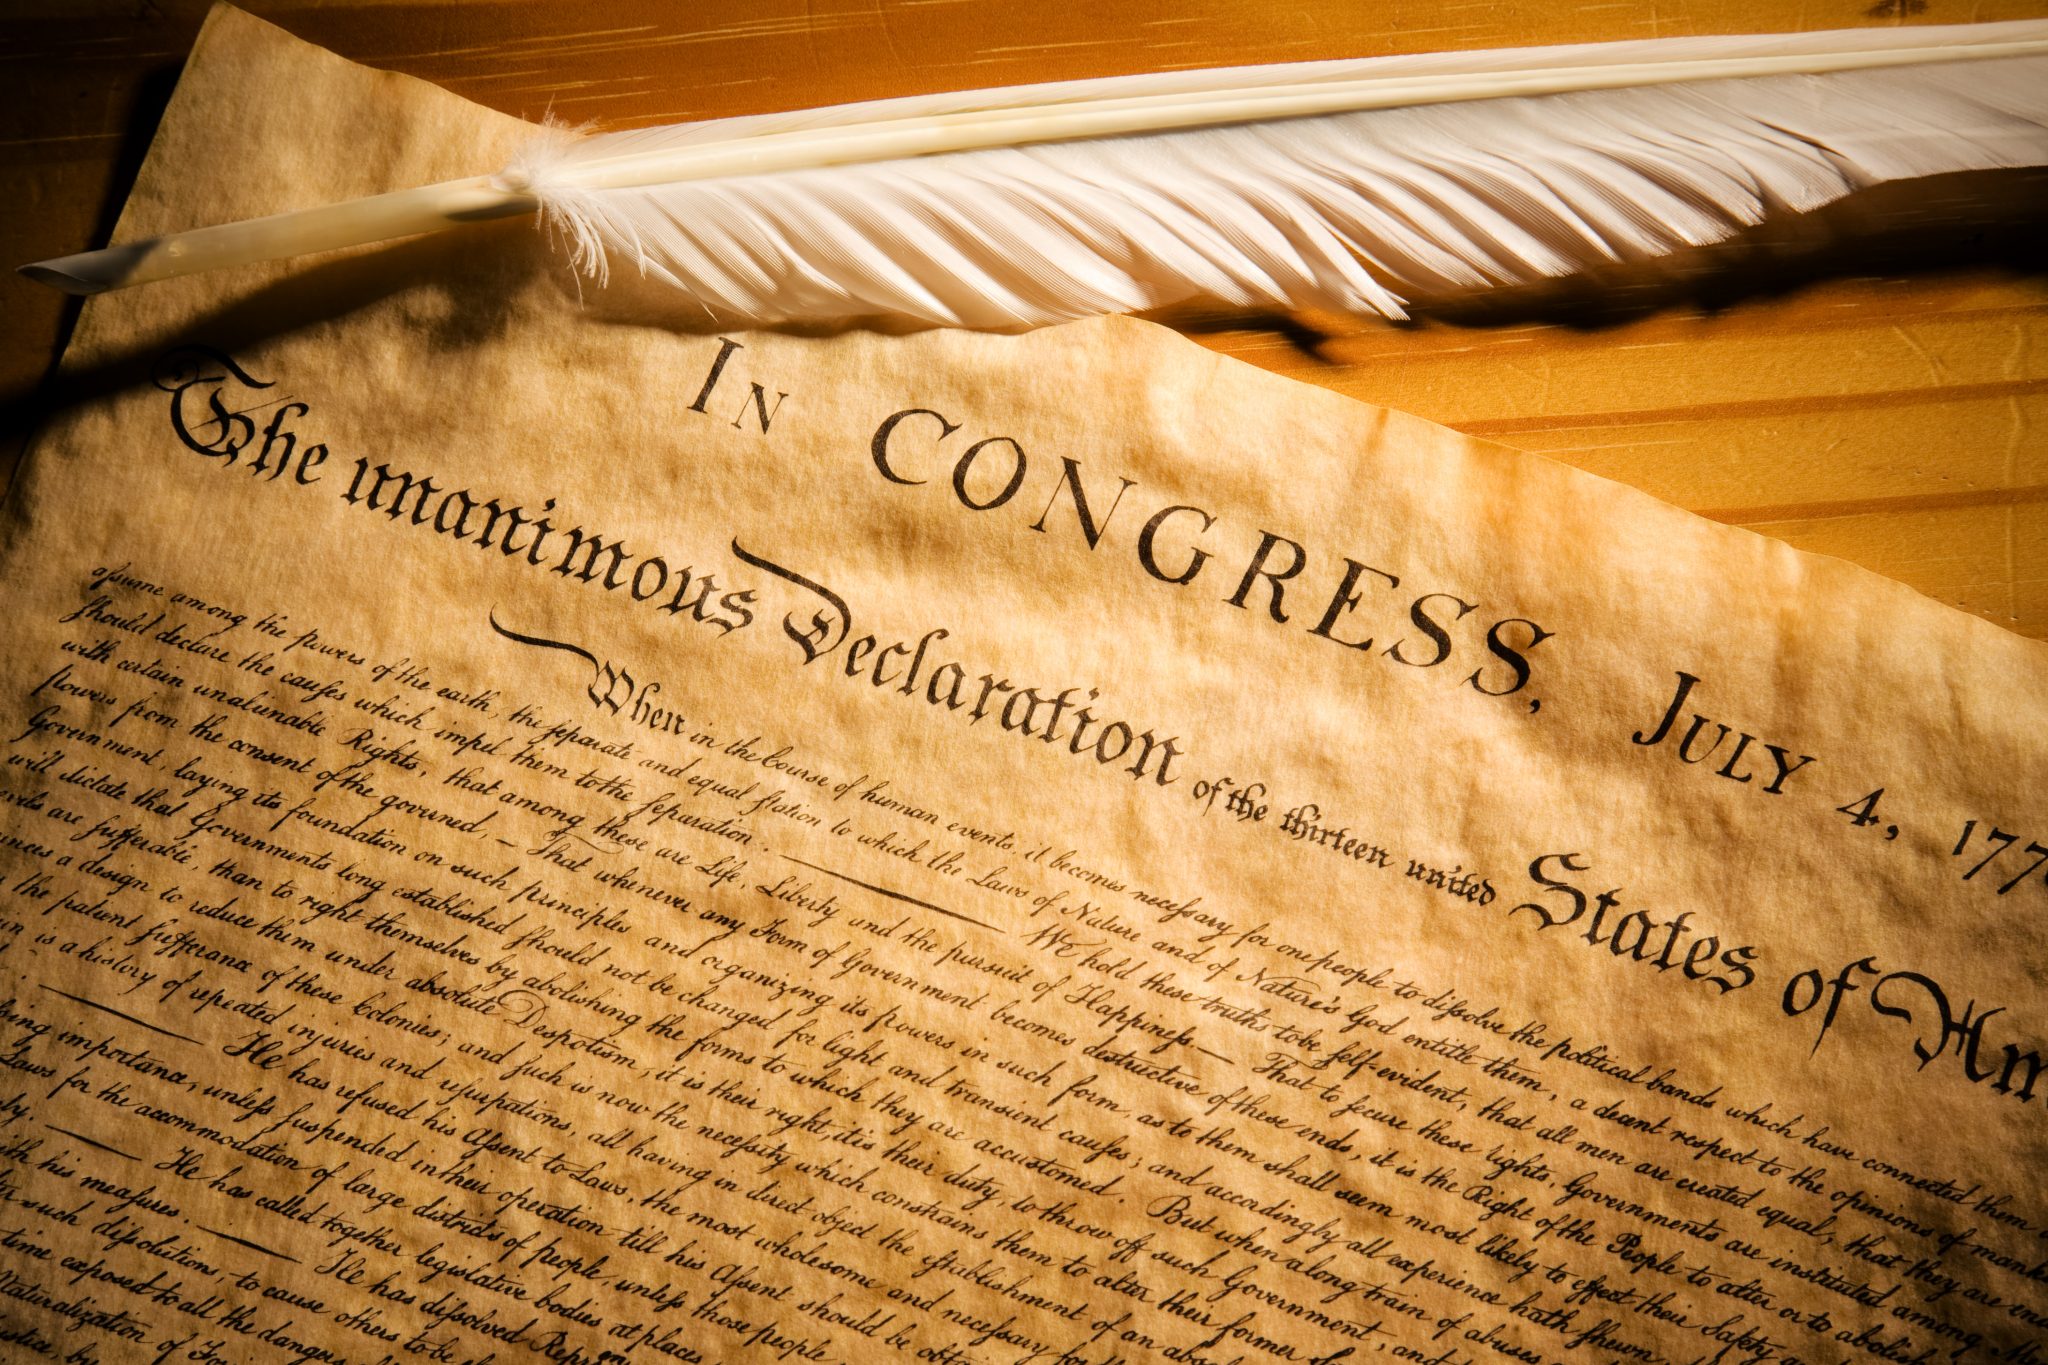 In CONGRESS, July 4, 177
The unanimous Declaration of the thirteen united States of Am
When in the Course of human events, it becomes necessary for one people to dissolve the political bands which have connected them
assume among the powers of the earth, the separate and equal station to which the Laws of Nature and of Nature's God entitle them, a decent respect to the opinions of mank
should declare the causes which impel them to the separation. — We hold these truths to be self-evident, that all men are created equal, that they are en
with certain unalienable Rights, that among these are Life, Liberty and the pursuit of Happiness.— That to secure these rights, Governments are instituted among
powers from the consent of the governed, — That whenever any Form of Government becomes destructive of these ends, it is the Right of the People to alter or to abolish
Government, laying its foundation on such principles and organizing its powers in such form, as to them shall seem most likely to effect their Safety
will dictate that Governments long established should not be changed for light and transient causes; and accordingly all experience hath shewn
are sufferable, than to right themselves by abolishing the forms to which they are accustomed. But when a long train of abuses
inces a design to reduce them under absolute Despotism, it is their right, it is their duty, to throw off such Government, and
the patient sufferance of these Colonies; and such is now the necessity which constrains them to alter their former
is a history of repeated injuries and usurpations, all having in direct object the establishment of an abso
— He has refused his Assent to Laws, the most wholesome and necessary for
sing importance, unless suspended in their operation till his Assent should be obt
Laws for the accommodation of large districts of people, unless those people
— He has called together legislative bodies at places
with his measures. — He has dissolved Repre
such dissolutions, to cause others to be
time exposed to all the dangers
Naturalization of